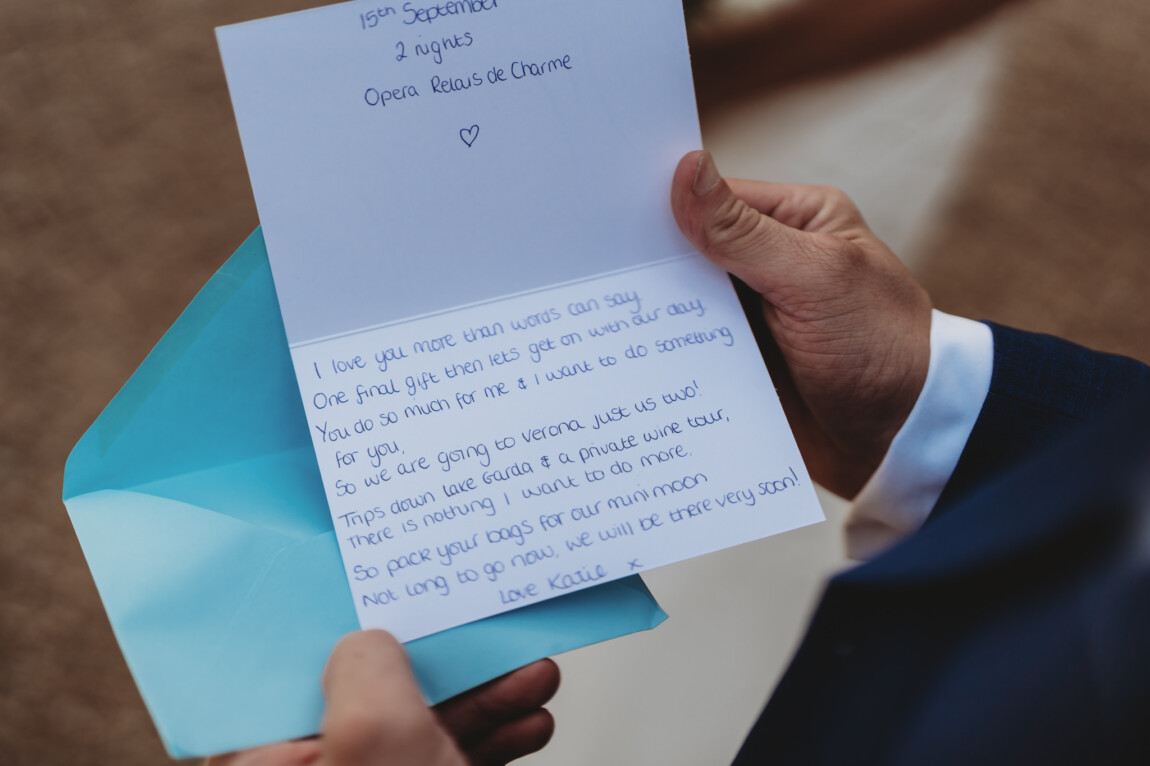 15th September
2 nights
Opera Relais de Charme
♡
I love you more than words can say.
One final gift then lets get on with our day.
You do so much for me & I want to do something
for you,
So we are going to Verona just us two!
Trips down Lake Garda & a private wine tour,
There is nothing I want to do more.
So pack your bags for our mini moon
Not long to go now, we will be there very soon!
Love Katie x